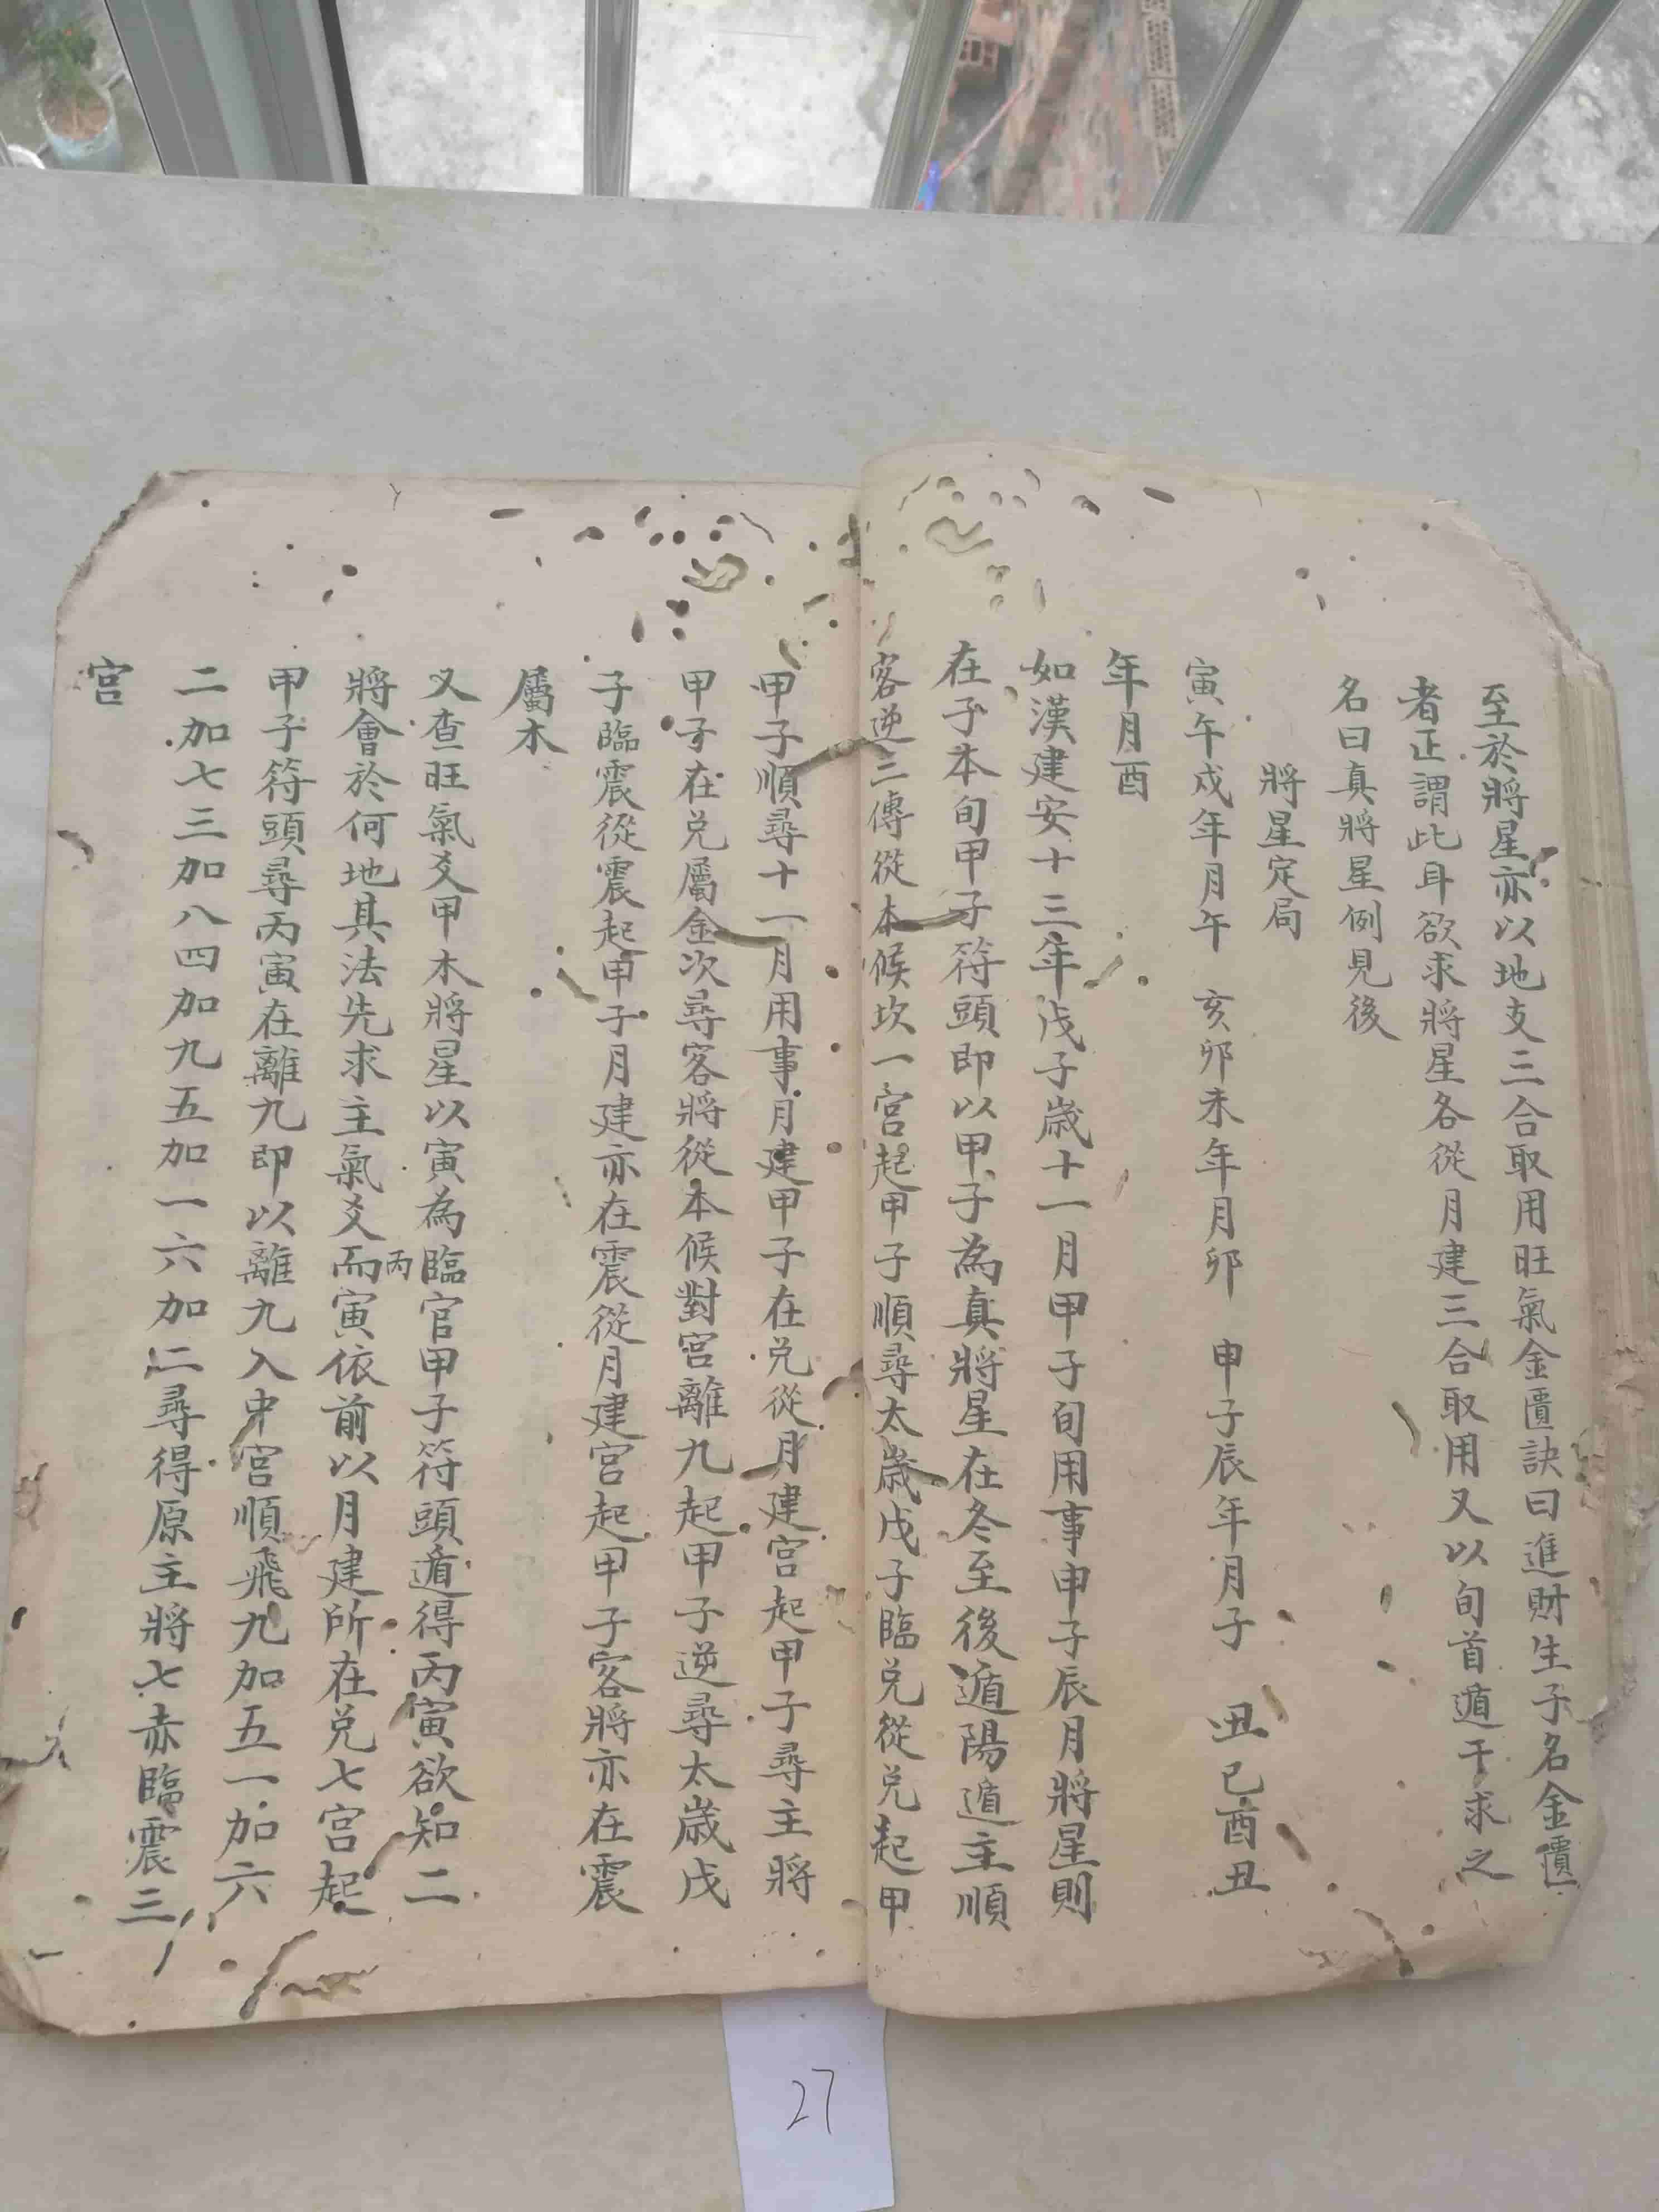 至於將星亦以地支三合取用旺氣金匱訣曰進財生子名金匱
者正謂此耳欲求將星各從月建三合取用又以旬首遁干求之
名曰真將星例見後
將星定局
寅午戍年月午 亥卯未年月卯 申子辰年月子 丑巳酉丑
年月酉
如漢建安十三年戊子歲十一月甲子旬用事申子辰月將星則
在子本旬甲子符頭即以甲子為真將星在冬至後遁陽遁主順
客逆三傳從本候坎一宮起甲子順尋太歲戊子臨兌從兌起甲
甲子順尋十一月用事月建甲子在兌從月建宮起甲子尋主將
甲子在兌屬金次尋客將從本候對宮離九起甲子逆尋太歲戊
子臨震從震起甲子月建亦在震從月建宮起甲子客將亦在震
屬木
又查旺氣爻甲木將星以寅為臨官甲子符頭遁得丙寅欲知二
將會於何地其法先求主氣爻而丙寅依前以月建所在兌七宮起
甲子符頭尋丙寅在離九即以離九入中宮順飛九加五一加六
二加七三加八四加九五加一六加二尋得原主將七赤臨震三
宮
27